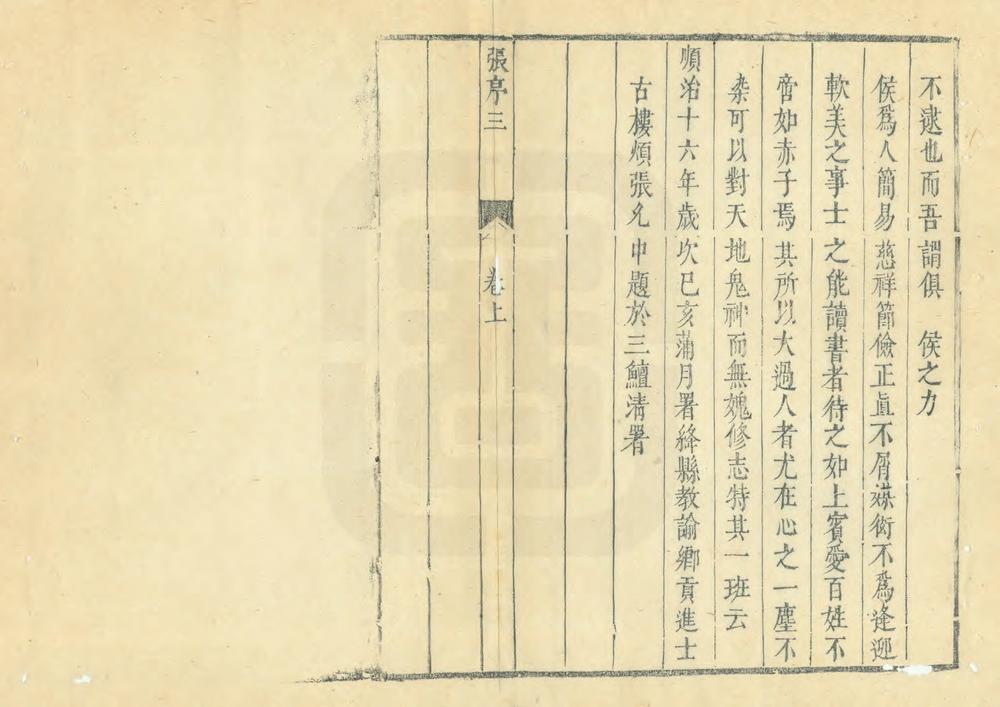 不逮也而吾謂俱　侯之力
侯爲人簡易慈祥節儉正眞不屑媒衒不爲逢迎
軟美之事士之能讀書者待之如上賓愛百姓不
啻如赤子焉其所以大過人者尤在心之一塵不
染可以對天地鬼神而無媿修志特其一班云
順治十六年歲次巳亥蒲月署絳縣教諭鄉貢進士
古樓煩張允中題於三鱣淸署
張序三
卷上